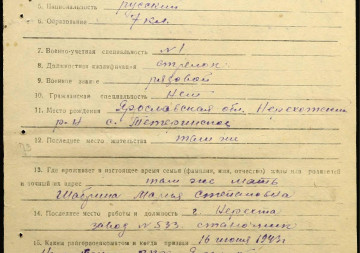 5. Национальность русский
6. Образование 7 кл.
7. Военно-учетная специальность №1
8. Должностная квалификация стрелок
9. Военное звание рядовой
10. Гражданская специальность Нет
11. Место рождения Ярославская обл. Нерехотский
р-н с. Тетеринское
12. Последнее место жительства там же
13. Где проживает в настоящее время семья (фамилия, имя, отчество) жены или родителей
и точный их адрес там же мать
Шабрина Мария Степановна
14. Последнее место работы и должность г. Нерехта
завод №533 станочник
15. Каким райвоенкоматом и когда призван 16 июня 1943г